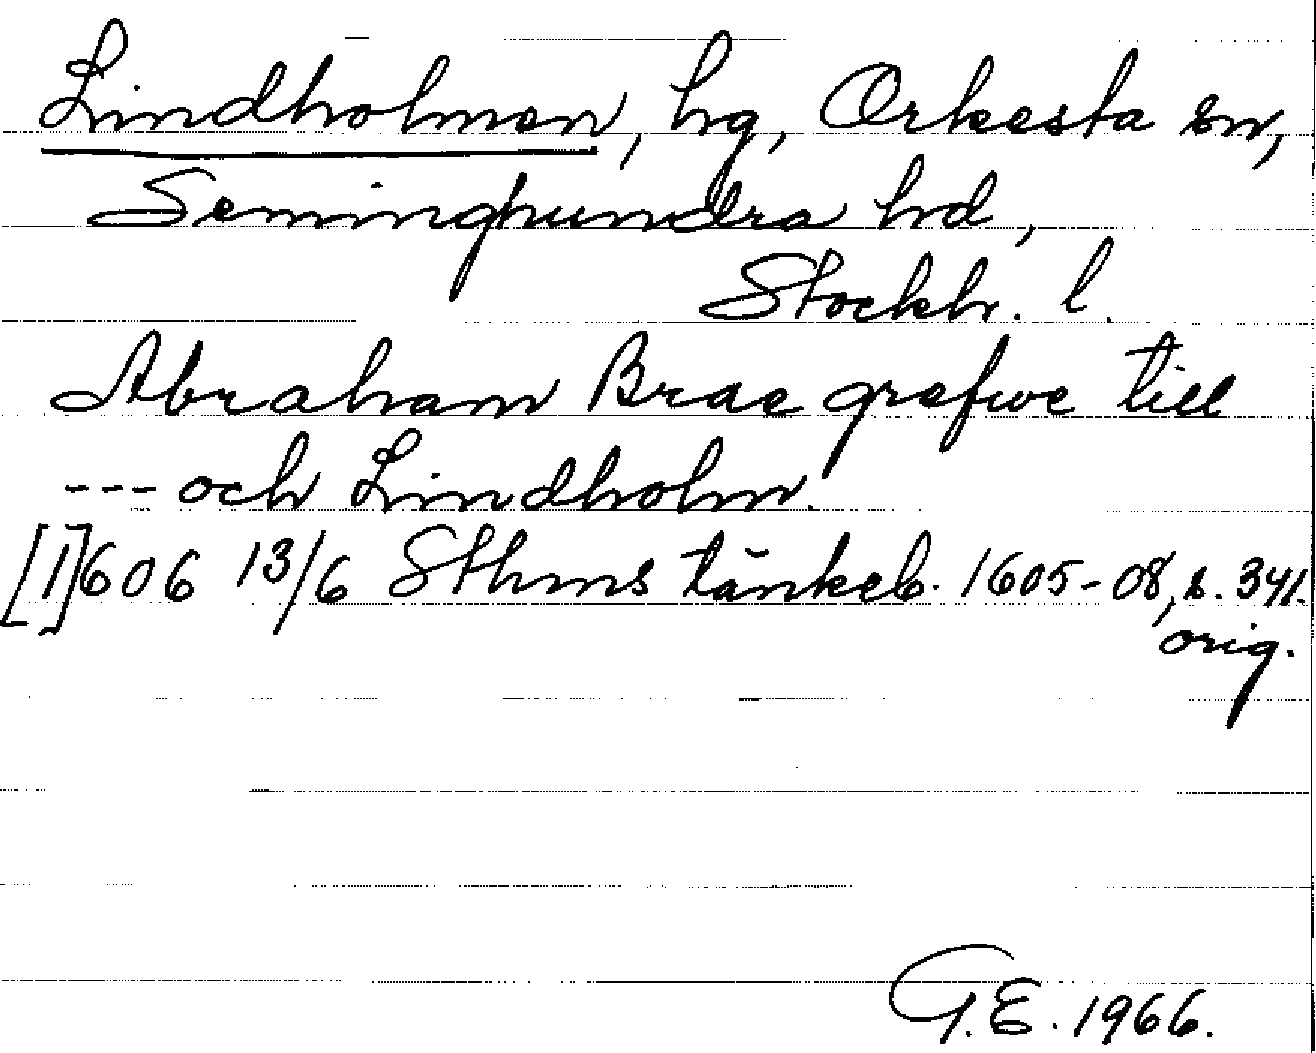 Lindholmen, hg, Orkesta sn,
Seminghundra hd,
Stockh. l.
Abraham Brae grefwe till
--- och Lindholm.
[1]606 13/6 Sthms tänkeb. 1605-08, s. 341.
orig.
G.E. 1966.